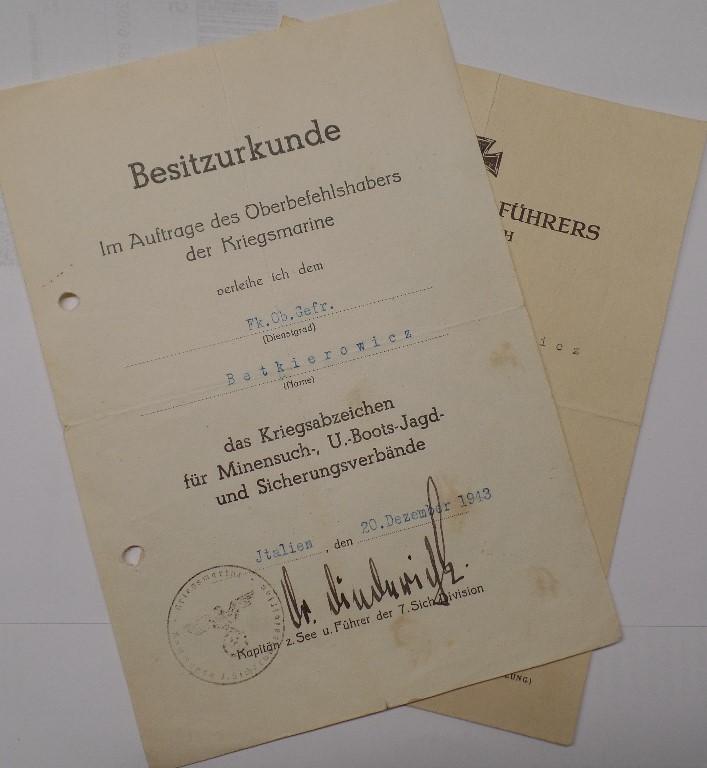 Besitzurkunde
Im Auftrage des Oberbefehlshabers
der Kriegsmarine
verleihe ich dem
Fk.Ob.Gefr.
(Dienstgrad)
Betkierowicz
(Name)
das Kriegsabzeichen
für Minensuch-, U.-Boots-Jagd-
und Sicherungsverbände
Jtalien, den 20.Dezember 1943
Kapitän z. See u. Führer der 7. Sich. Division
Kriegsmarine
FÜHRERS
H
icz
UNG)